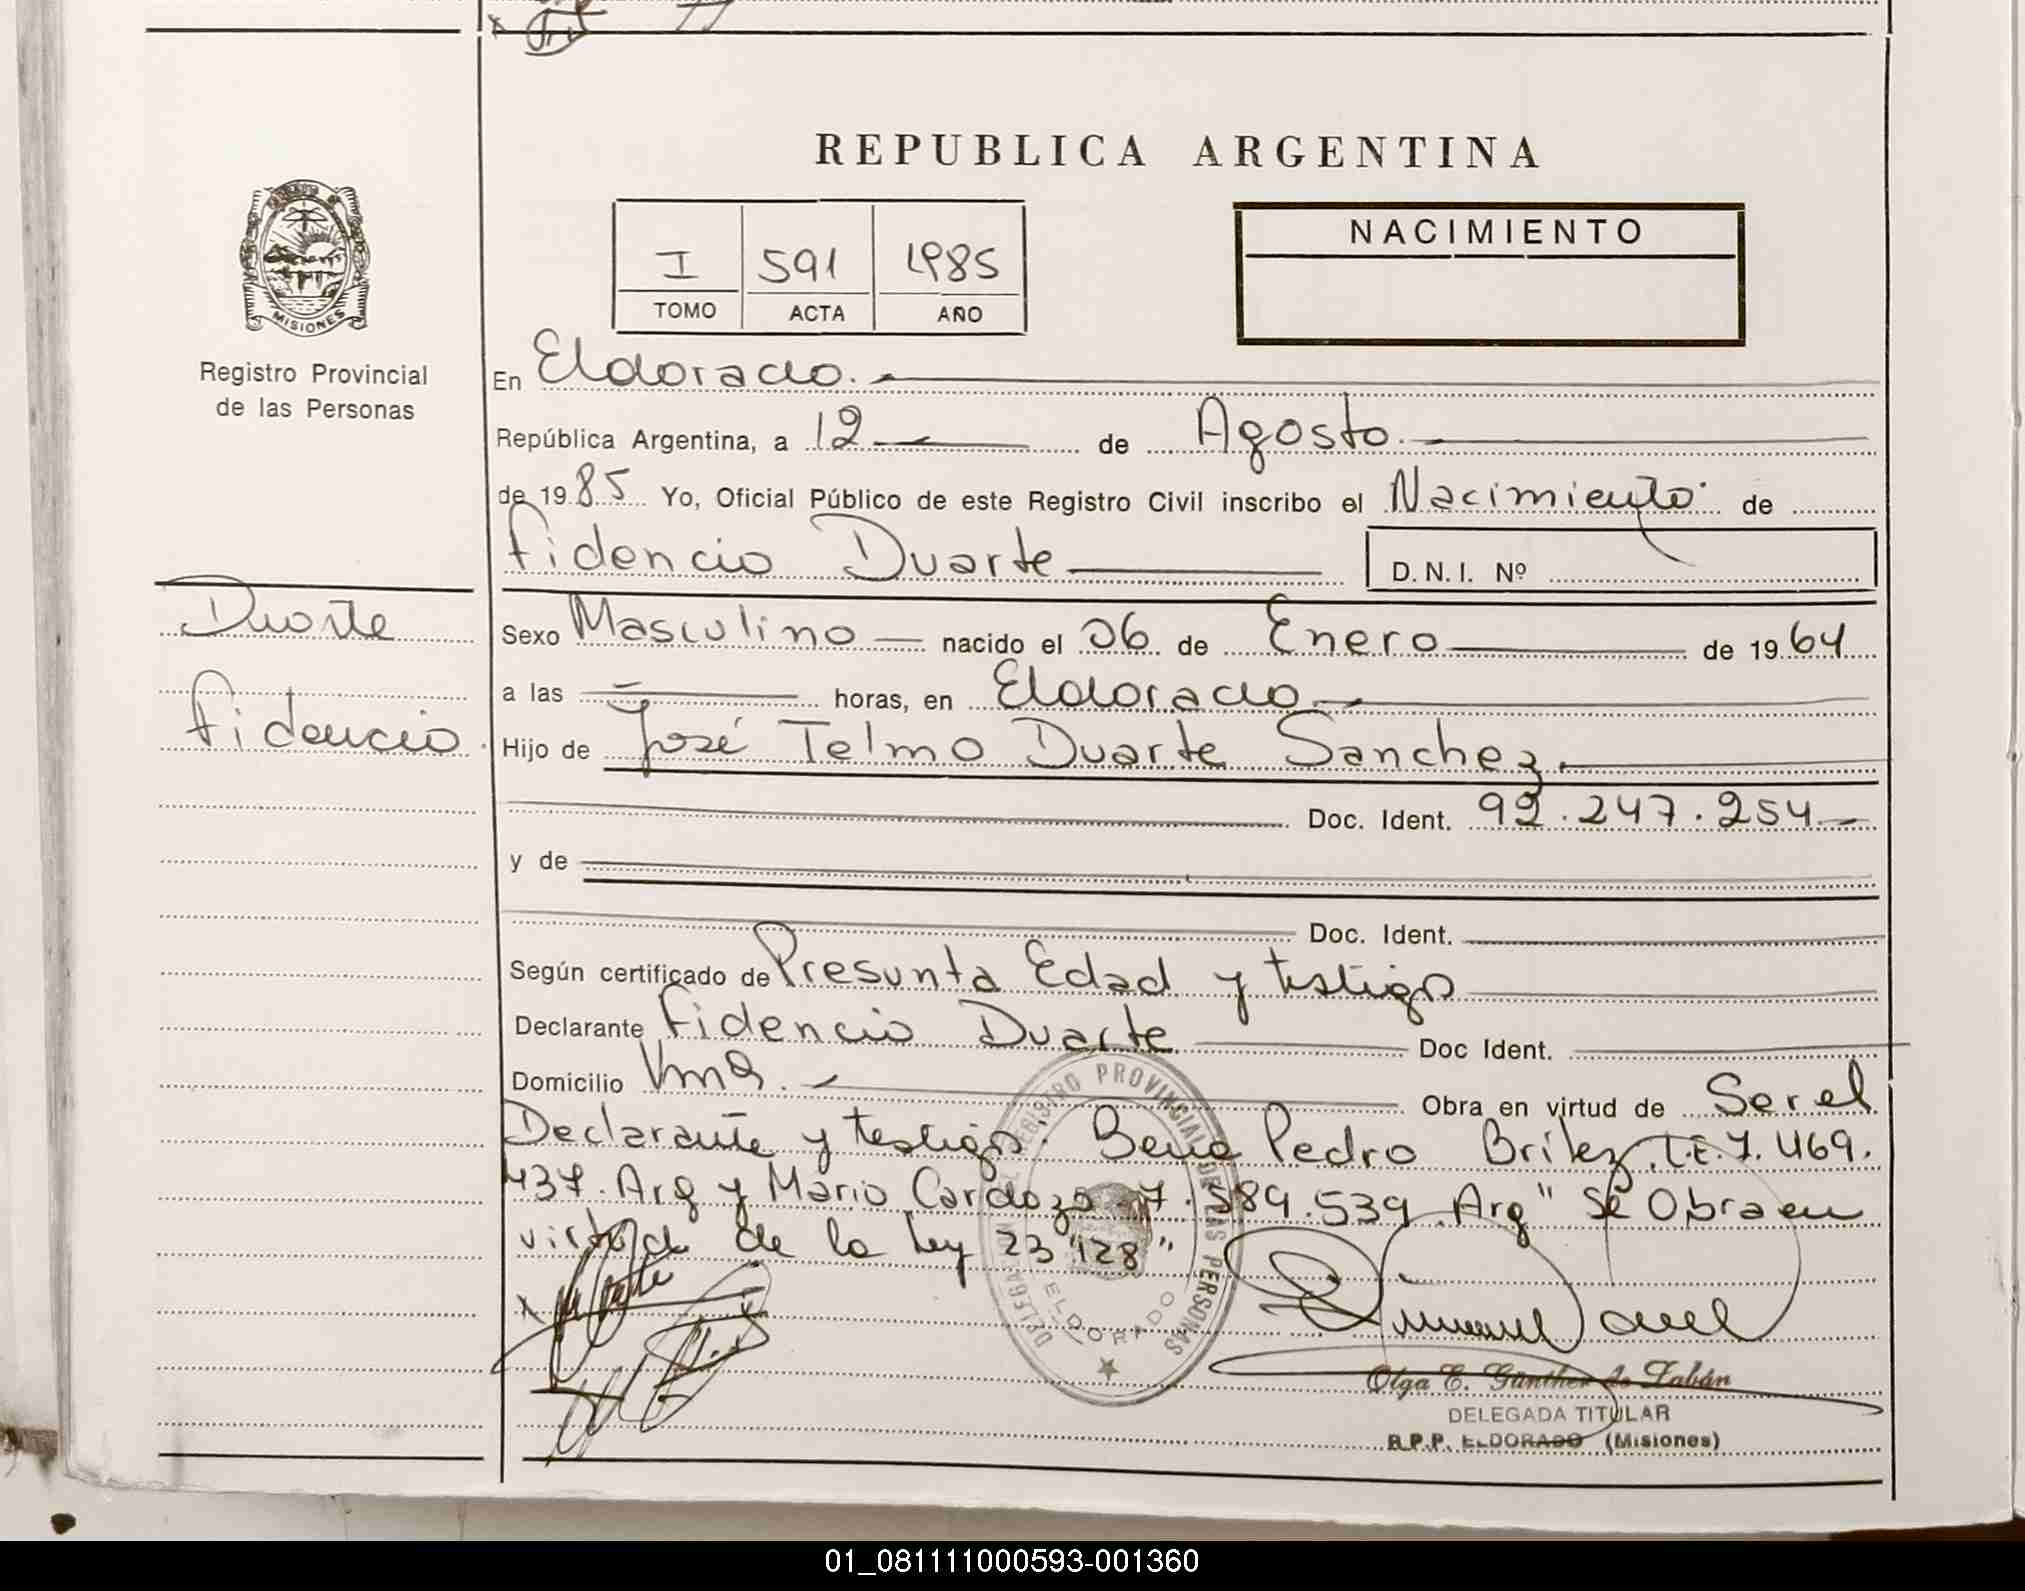 REPUBLICA ARGENTINA
I 591 1985
TOMO ACTA AÑO
NACIMIENTO
MISIONES
Registro Provincial
de las Personas
En Eldorado.
República Argentina, a 12 de Agosto.
de 1985 Yo, Oficial Público de este Registro Civil inscribo el Nacimiento de
Fidencio Duarte
D.N.I. Nº
Duarte
Fidencio
Sexo Masculino nacido el 06 de Enero de 1964
a las horas, en Eldorado
Hijo de José Telmo Duarte Sanchez
Doc. Ident. 92.247.254
y de
Doc. Ident.
Según certificado de Presunta Edad y testigo
Declarante Fidencio Duarte Doc Ident.
Domicilio Obra en virtud de Ser el
Declarante y testigo. Pedro Britez L.E. 7.469.
437. Arg y Mario Cardozo 7.589.539 Arg" Se Obra en
virtud de la ley 23"128"
DELEGACION REGISTRO PROVINCIAL DE LAS PERSONAS
ELDORADO
Olga E. Günther de Zabán
DELEGADA TITULAR
R.P.P. ELDORADO (Misiones)
01_081111000593-001360